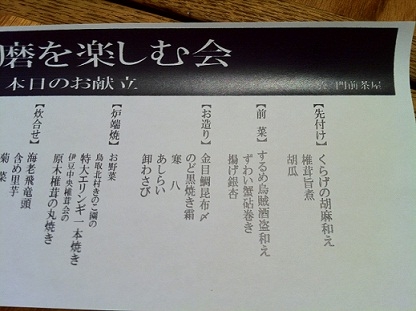 磨を楽しむ会
本日のお献立
門前茶屋
【先付け】
くらげの胡麻和え
椎茸旨煮
胡瓜
【前 菜】
するめ烏賊酒盗和え
ずわい蟹砧巻き
揚げ銀杏
【お造り】
金目鯛昆布〆
のど黒焼き霜
寒 八
あしらい
卸わさび
【炉端焼】
お野菜
鳥取北村きのこ園の
特大エリンギ一本焼き
伊豆中央椎茸会の
原木椎茸の丸焼き
【炊合せ】
海老飛竜頭
含め里芋
菊 菜